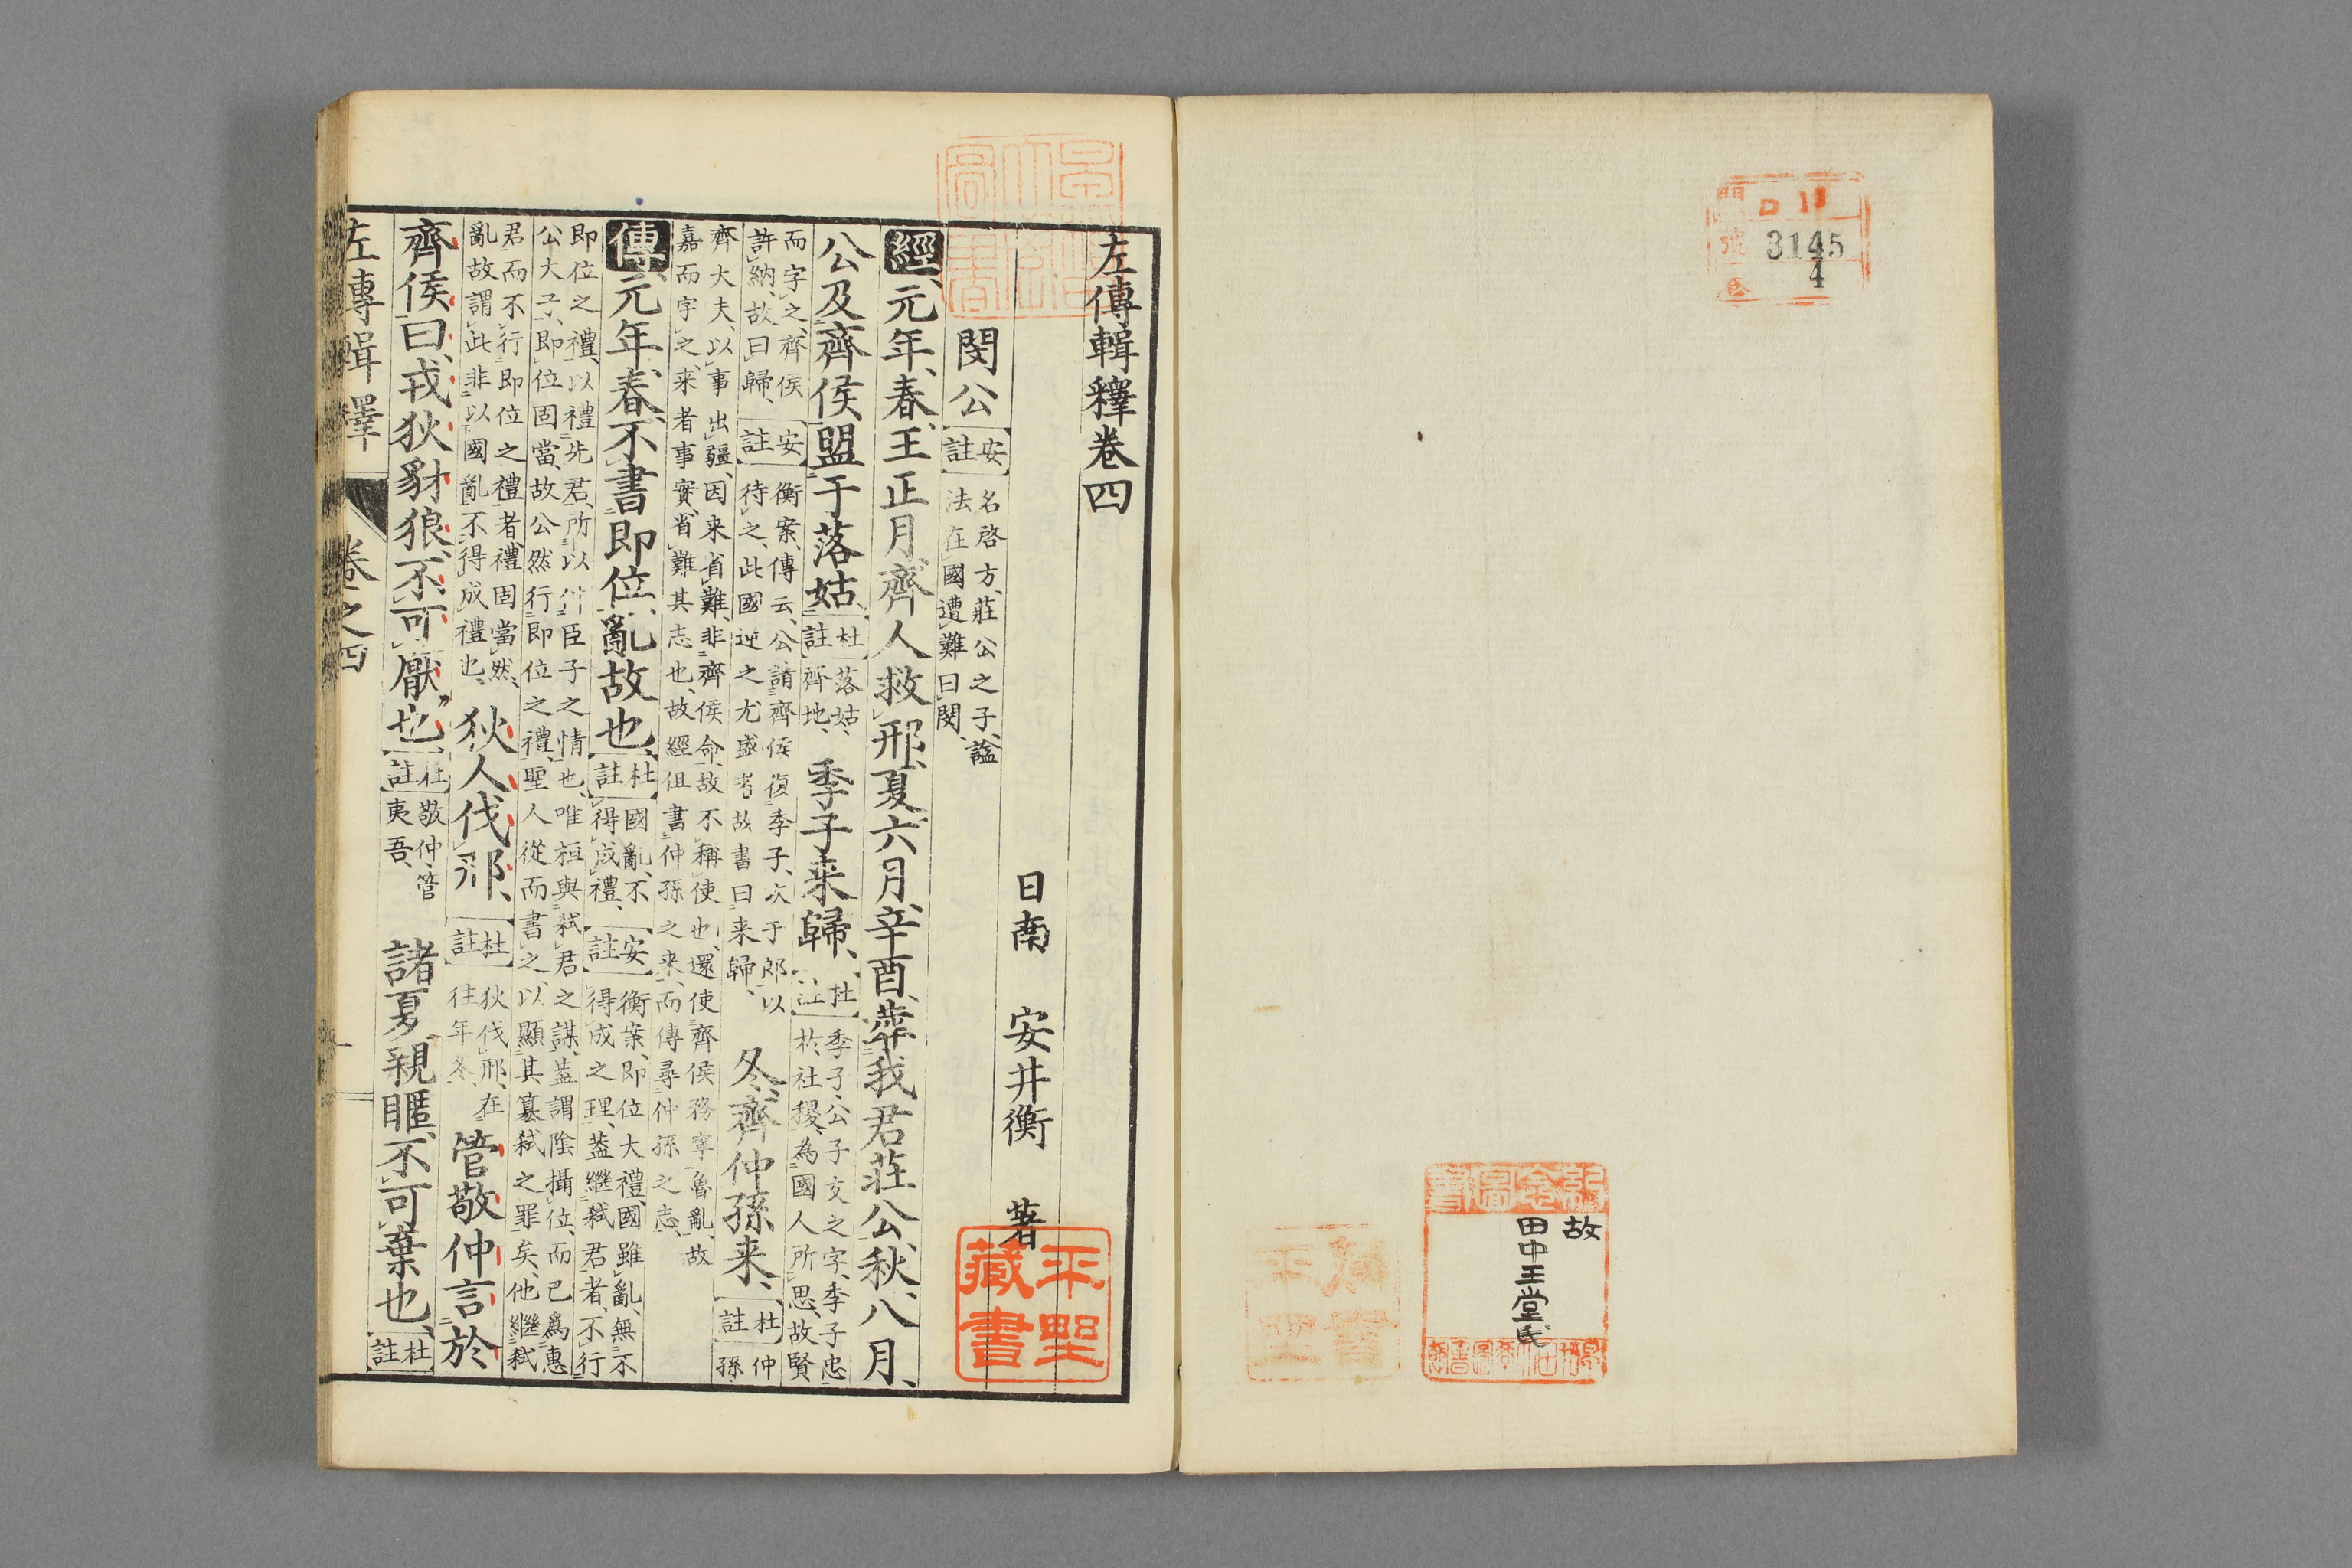 3145
4
故
田中王堂氏
左傳輯釋卷四
日南 安井衡 著
閔公
安註
名啓方、莊公之子、謚
法在國遭難曰閔、
經元年、春、王正月、齊人救邢、夏六月、辛酉、葬我君莊公、秋、八月、
公及齊侯盟于落姑、
杜註
落姑、
齊地、
季子来歸、
杜註
季子、公子友之字、季子忠
於社稷、為國人所思、故賢
而字之、齊侯
許納、故曰歸、
安註
衡案、傳云、公請齊侯復季子、次于郎以
待之、此國逆之尤盛者、故書曰来歸、
冬、齊仲孫来、
杜註
仲
孫
齊大夫、以事出疆、因来省難、非齊侯命、故不稱使也、還使齊侯務寧魯亂、故
嘉而字之、来者事實、省難其志也、故經但書仲孫之来、而傳尋仲孫之志、
傳元年、春、不書即位、亂故也、
杜註
國亂、不
得成禮、
安註
衡案、即位大禮、國雖亂、無不
得成之理、蓋繼弑君者、不行
即位之禮、以禮先君、所以伸臣子之情也、唯桓與弑君之謀、蓋謂隂攝位、而已為惠
公大子、即位固當、故公然行即位之禮、聖人從而書之、以顯其簒弑之罪矣、他繼弑
君而不行即位之禮者、禮固當然、
亂故謂此非以國亂不得成禮也、
狄人伐邢、
杜註
狄伐邢、在
往年冬、
管敬仲言於
齊侯曰、戎狄豺狼、不可厭也、
杜註
敬仲、管
夷吾、
諸夏親暱、不可棄也、
杜註
左傳輯釋 卷之四
平塱藏書